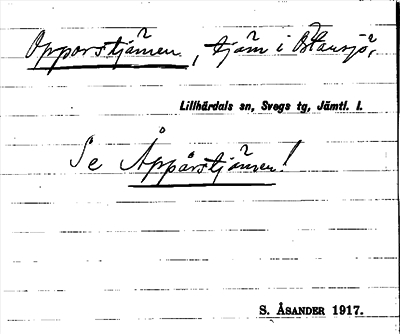 Opporstjärnen, tjärn i Östansjö,
Lillhärdals sn, Svegs tg, Jämtl. l.
Se Åppårstjärnen!
S. ÅSANDER 1917.